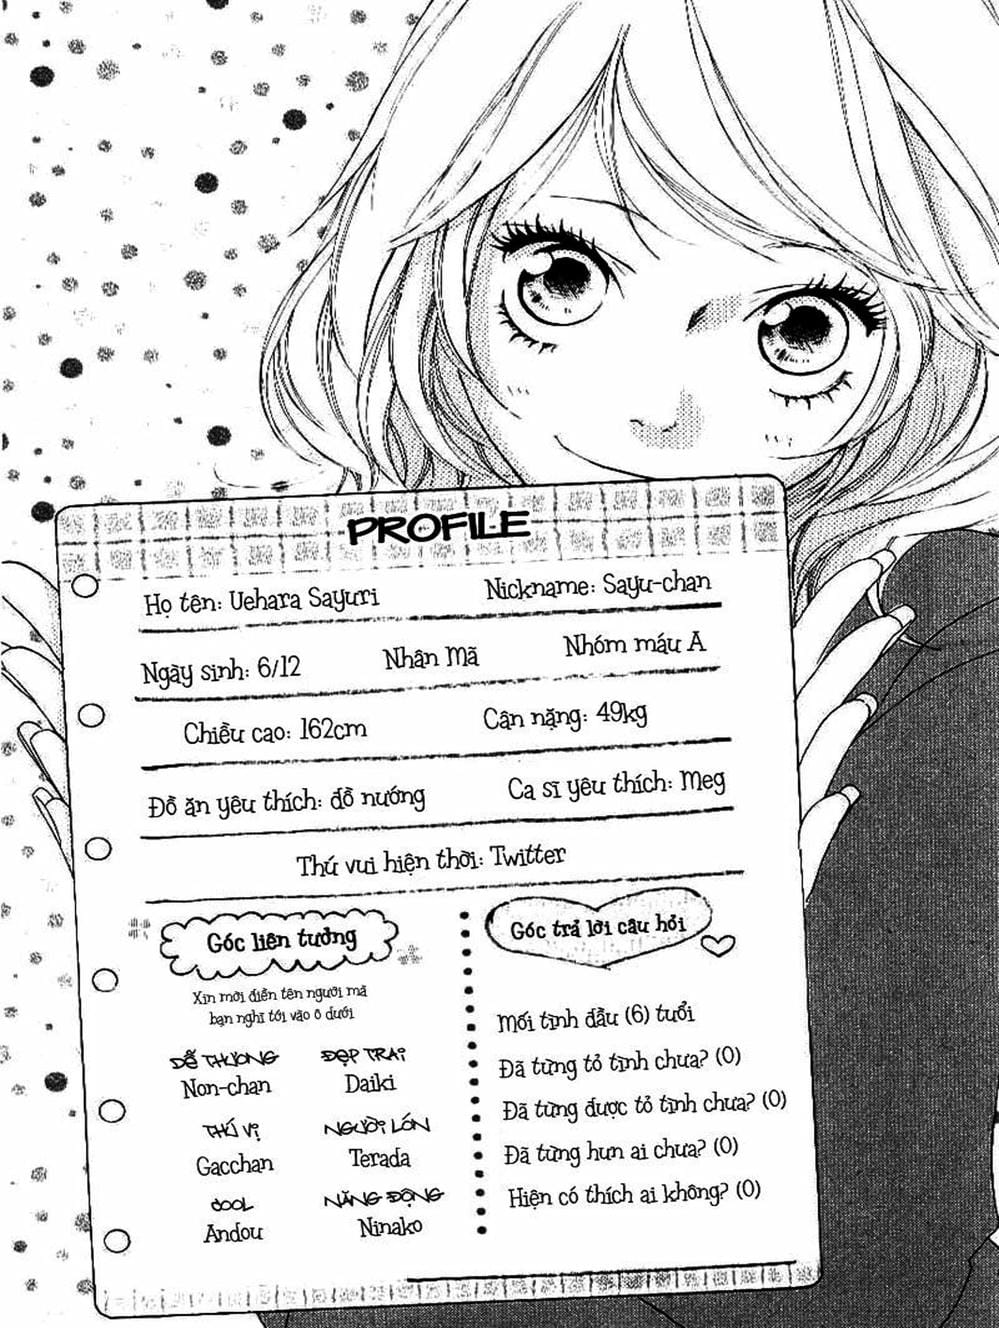 PROFILE
Họ tên: Uehara Sayuri Nickname: Sayu-chan
Ngày sinh: 6/12 Nhân Mã Nhóm máu A
Chiều cao: 162cm Cân nặng: 49kg
Đồ ăn yêu thích: đồ nướng Ca sĩ yêu thích: Meg
Thú vui hiện thời: Twitter
Góc liên tưởng
Xin mời điền tên người mà
bạn nghĩ tới vào ô dưới
DỄ THƯƠNG ĐẸP TRAI
Non-chan Daiki
THÚ VỊ NGƯỜI LỚN
Gacchan Terada
COOL NĂNG ĐỘNG
Andou Ninako
Góc trả lời câu hỏi
Mối tình đầu (6) tuổi
Đã từng tỏ tình chưa? (O)
Đã từng được tỏ tình chưa? (O)
Đã từng hun ai chưa? (O)
Hiện có thích ai không? (O)